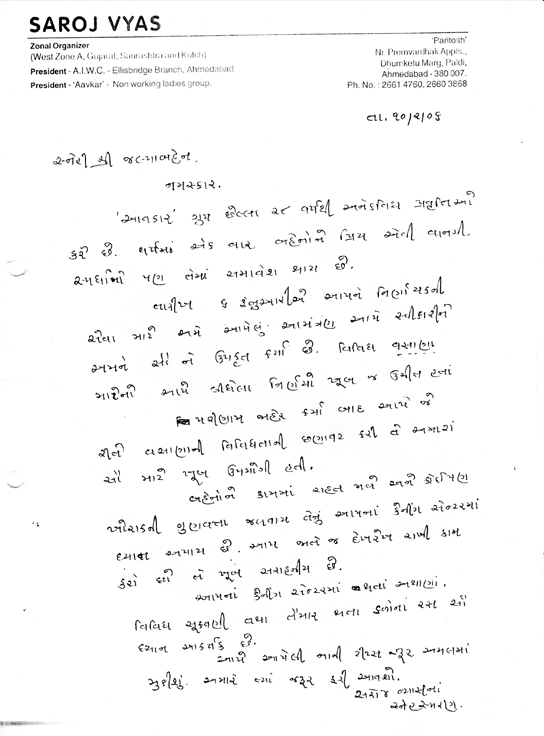 SAROJ VYAS
Zonal Organizer
(West Zone A, Gujarat, Saurashtra and Kutch)
President - A.I.W.C. - Ellisbridge Branch, Ahmedabad
President - 'Aavkar' - Non working ladies group.
'Paritosh'
Nr. Premvardhak Appts.,
Dhumketu Marg, Paldi,
Ahmedabad - 380 007.
Ph. No. : 2661 4760, 2660 3868
તા. ૧૦/૨/૦૬
સ્નેહી શ્રી જલ્પાબહેન.
નમસ્કાર.
'આવકાર' ગ્રુપ છેલ્લા ૨૮ વર્ષથી અનેકવિધ પ્રવૃત્તિઓ
કરે છે. વર્ષમાં એક વાર બહેનોને પ્રિય એવી વાનગી
સ્પર્ધાનો પણ તેમાં સમાવેશ થાય છે.
તારીખ ૬ ફેબ્રુઆરીએ આપને નિર્ણાયકની
સેવા માટે અમે આપેલું આમંત્રણ આપે સ્વીકારીને
અમને સૌ ને ઉપકૃત કર્યા છે. વિવિધ વસાણા
માટેનો આપે લીધેલા નિર્ણયો ખૂબ જ ઉચીત હતાં
પરીણામ જાહેર કર્યા બાદ આપે જે
રીતે વસાણાની વિવિધતાની છણાવટ કરી તે અમારાં
સૌ માટે ખૂબ ઉપયોગી હતી.
બહેનોને કામમાં રાહત મળે અને કોઈપણ
ખોરાકની ગુણવત્તા જળવાય તેનું આપનાં કેનીંગ સેન્ટરમાં
ધ્યાન અપાય છે. આપ જાતે જ દેખરેખ રાખી કામ
કરો છો તે ખૂબ સરાહનીય છે.
આપનાં કેનીંગ સેન્ટરમાં થતાં અથાણાં,
વિવિધ સૂકવણી તથા તૈયાર થતા ફળોનાં રસ સૌ
ધ્યાન આકર્ષક છે.
આપે આપેલી નાની ટીપ્સ જરૂર અમલમાં
મુકીશું. અમારે ત્યાં જરૂર ફરી આવશો.
સરોજ વ્યાસનાં
સ્નેહસ્મરણ.